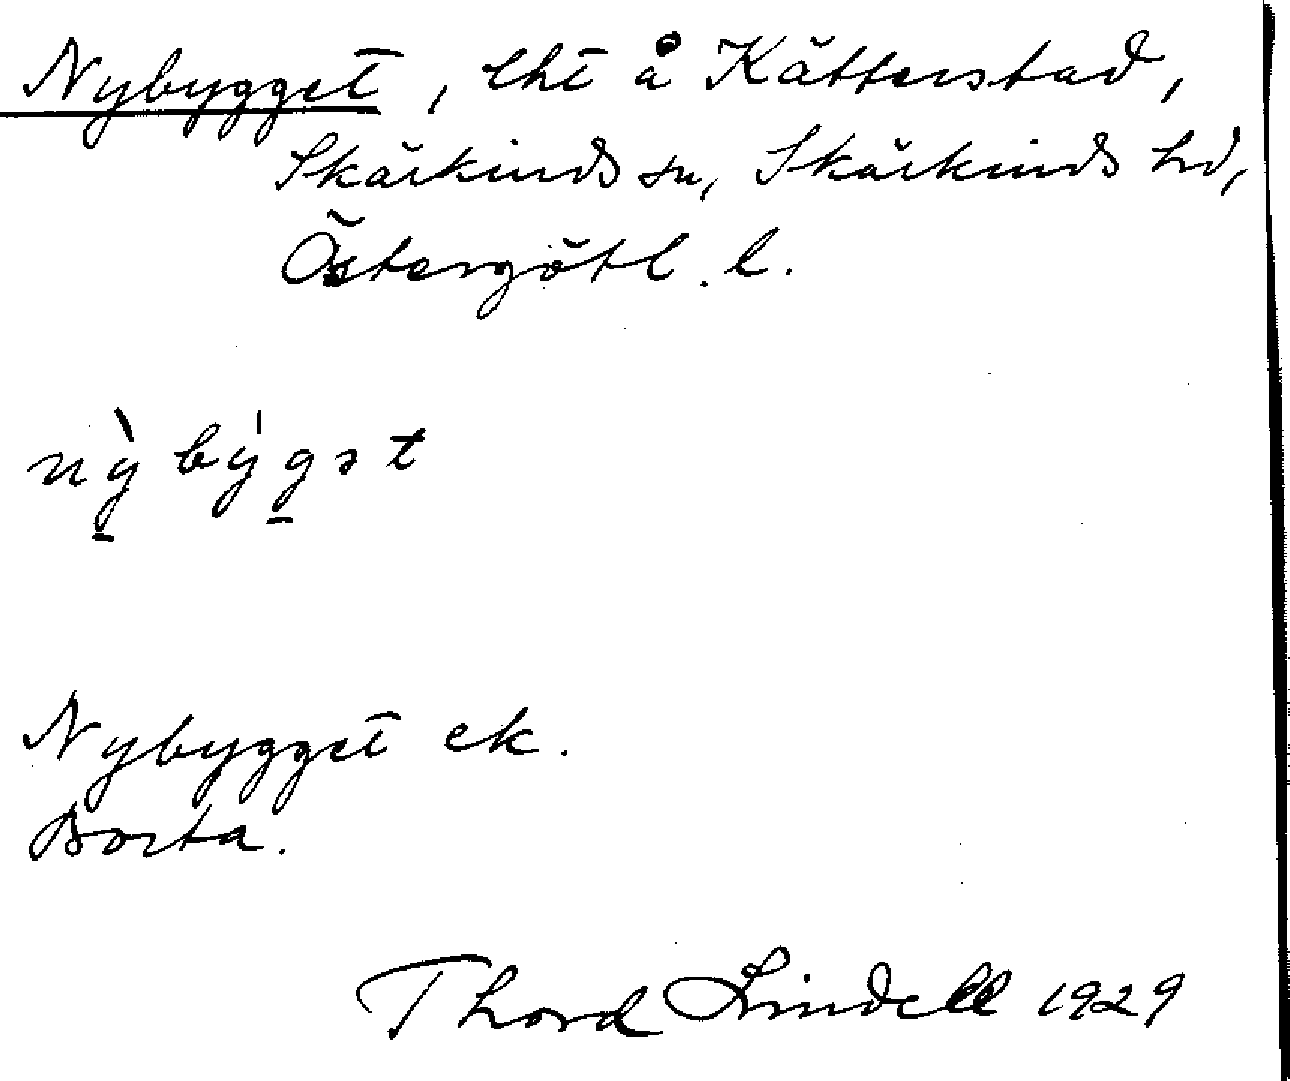 Nybygget, lht å Kätterstad,
Skärkinds sn, Skärkinds hd,
Östergötl. l.
nỳbýgət
Nybygget ek.
Borta.
Thord Lindell 1929